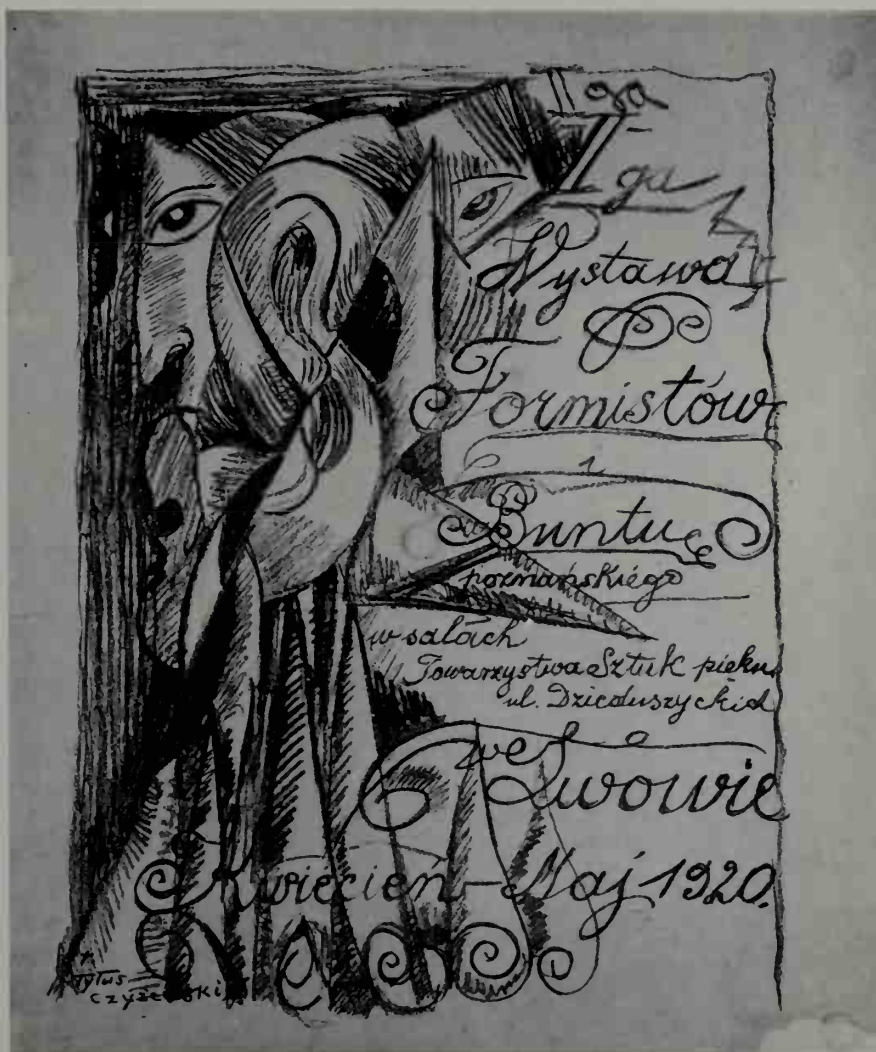 II ga
I ga
Wystawa
Formistów
i
Buntu
poznańskiego
w salach
Towarzystwa Sztuk piękn.
ul. Dzieduszyckich
we Lwowie
Kwiecień – Maj 1920.
Tytus
Czyżewski